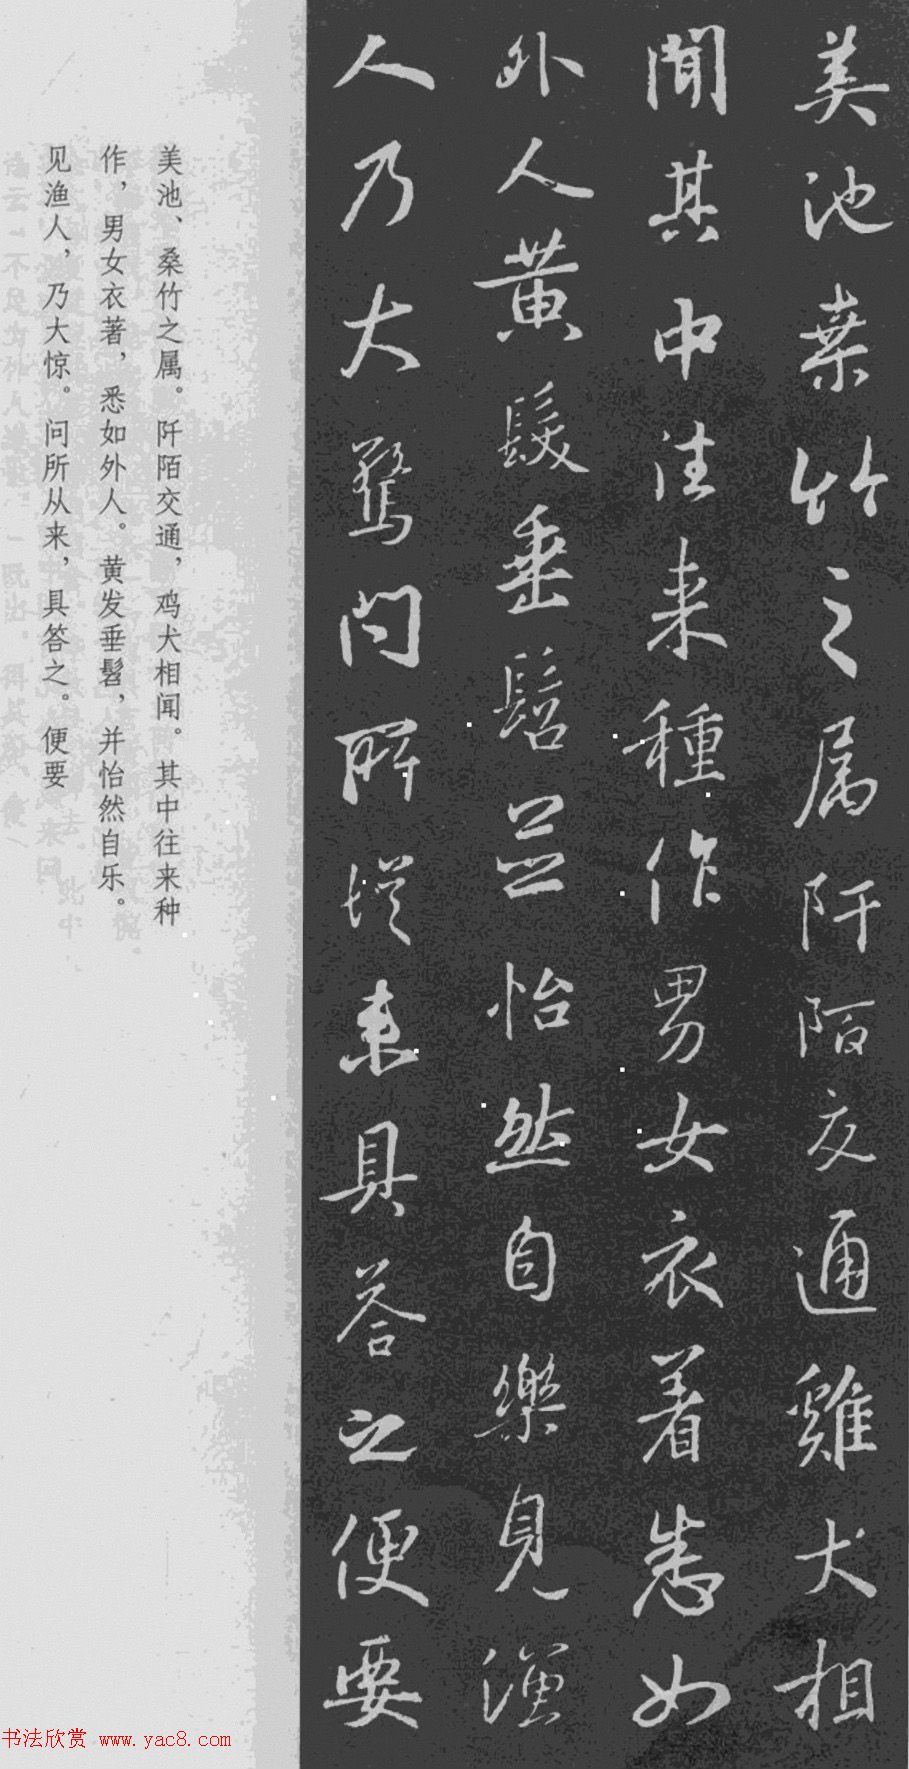 美池桑竹之属阡陌交通雞犬相
聞其中往来種作男女衣着悉如
外人黄髮垂髫並怡然自樂見漁
人乃大驚问所従来具答之便要
美池、桑竹之属。阡陌交通，鸡犬相闻。其中往来种
作，男女衣著，悉如外人。黄发垂髫，并怡然自乐。
见渔人，乃大惊。问所从来，具答之。便要
书法欣赏 www.yac8.com